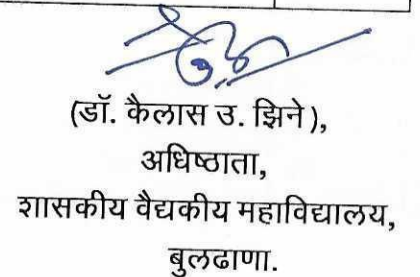 (डॉ. कैलास उ. झिने),
अधिष्ठाता,
शासकीय वैद्यकीय महाविद्यालय,
बुलढाणा.